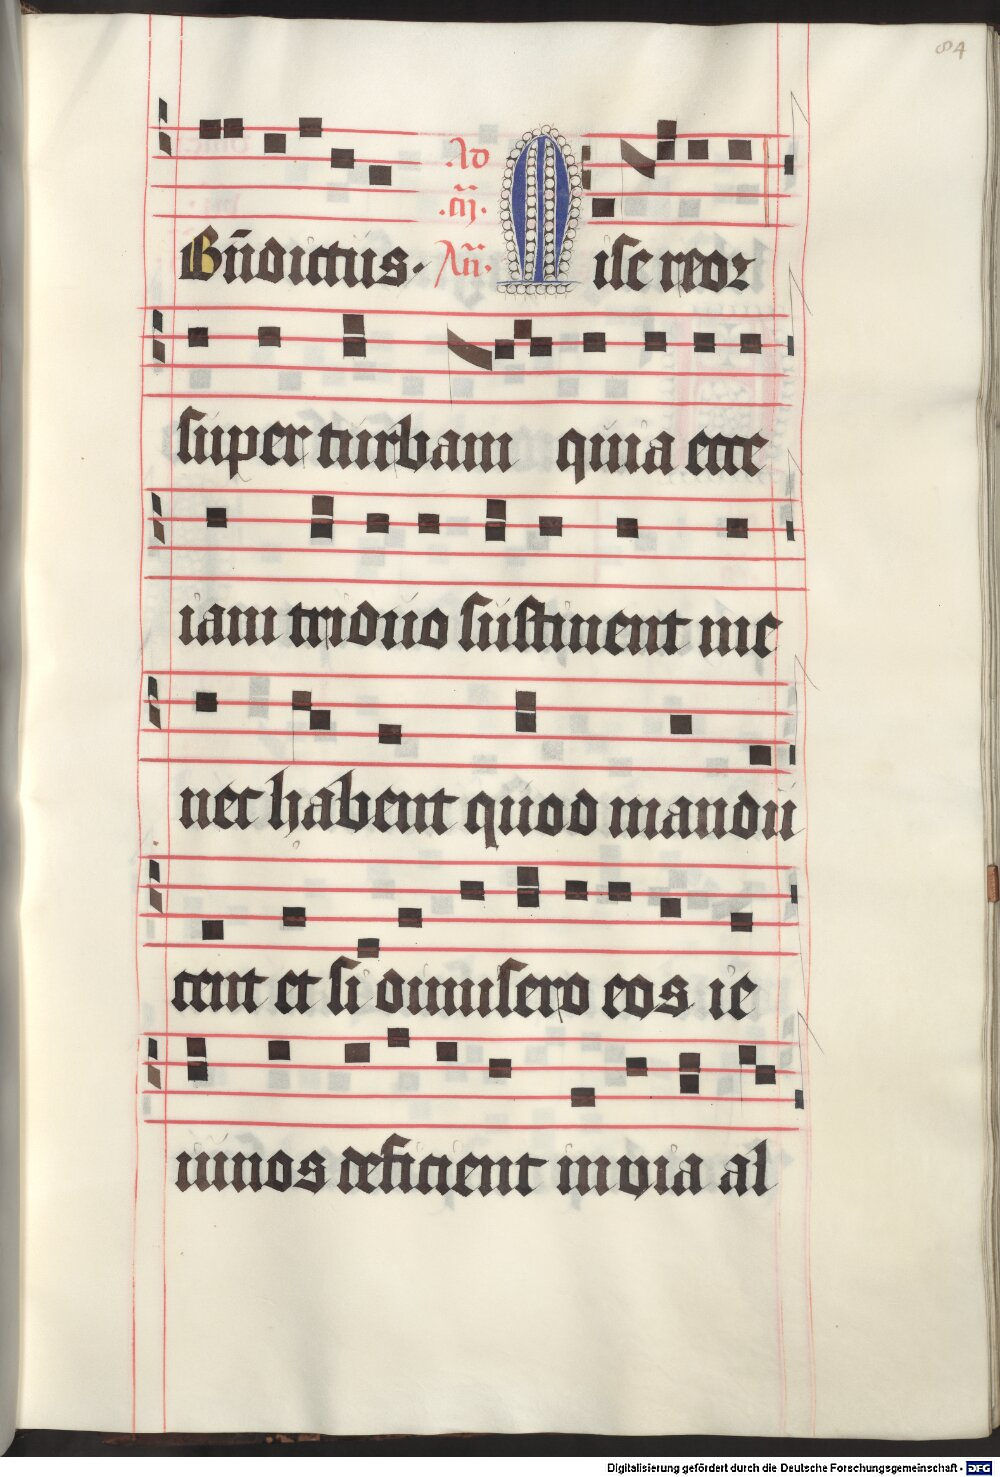 84
Bn̄dictus. Ad
.cā̄.
An̄. Mise reoꝛ
super turbam quia ecce
iam triduo sustinent me
nec habent quod mandu
cent et si dimisero eos ie
iunos deficient in via al
Digitalisierung gefördert durch die Deutsche Forschungsgemeinschaft - DFG